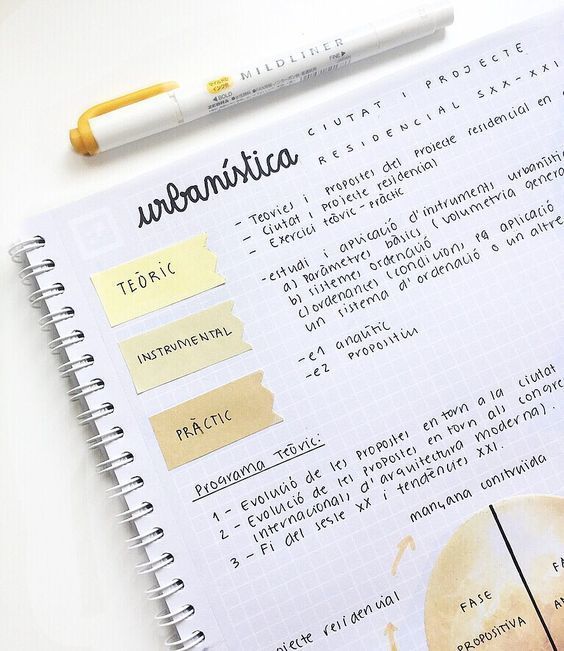 MILDLINER
BOLD
FINE
ZEBRA
CIUTAT I PROJECTE
RESIDENCIAL SXX-XXI
urbanística
- Teories i propostes del projecte residencial en
- Ciutat i projecte residencial
- Exercici teòric-pràctic
TEÒRIC
-estudi i aplicació d'instruments urbanístic
a) Paràmetres bàsics (volumetria genera
b) sistemes ordenació
c) ordenances (condicions per aplicació
un sistema d'ordenació o un altre
INSTRUMENTAL
-e1 analític
-e2 propositiu
PRÀCTIC
Programa Teòric:
1- Evolució de les propostes en torn a la ciutat
2- Evolució de les propostes en torn als congre
internacionals d'arquitectura moderna).
3- Fi del segle XX i tendències XXI.
manzana construida
FASE
PROPOSITIVA
FA
AN
ojecte residencial